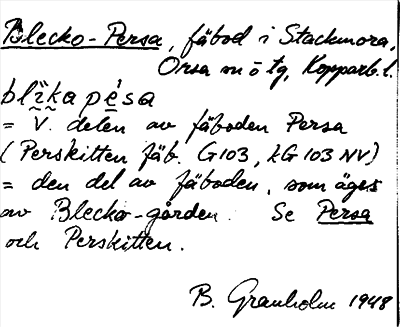 Blecko-Persa, fäbod i Stackmora,
Orsa sn ö tg, Kopparb. l.
blìka pésa
= V. delen av fäboden Persa
(Perskitten fäb. G103, kG 103 NV)
= den del av fäboden, som äges
av Blecko-gården. Se Persa
och Perskitten.
B. Granholm 1948